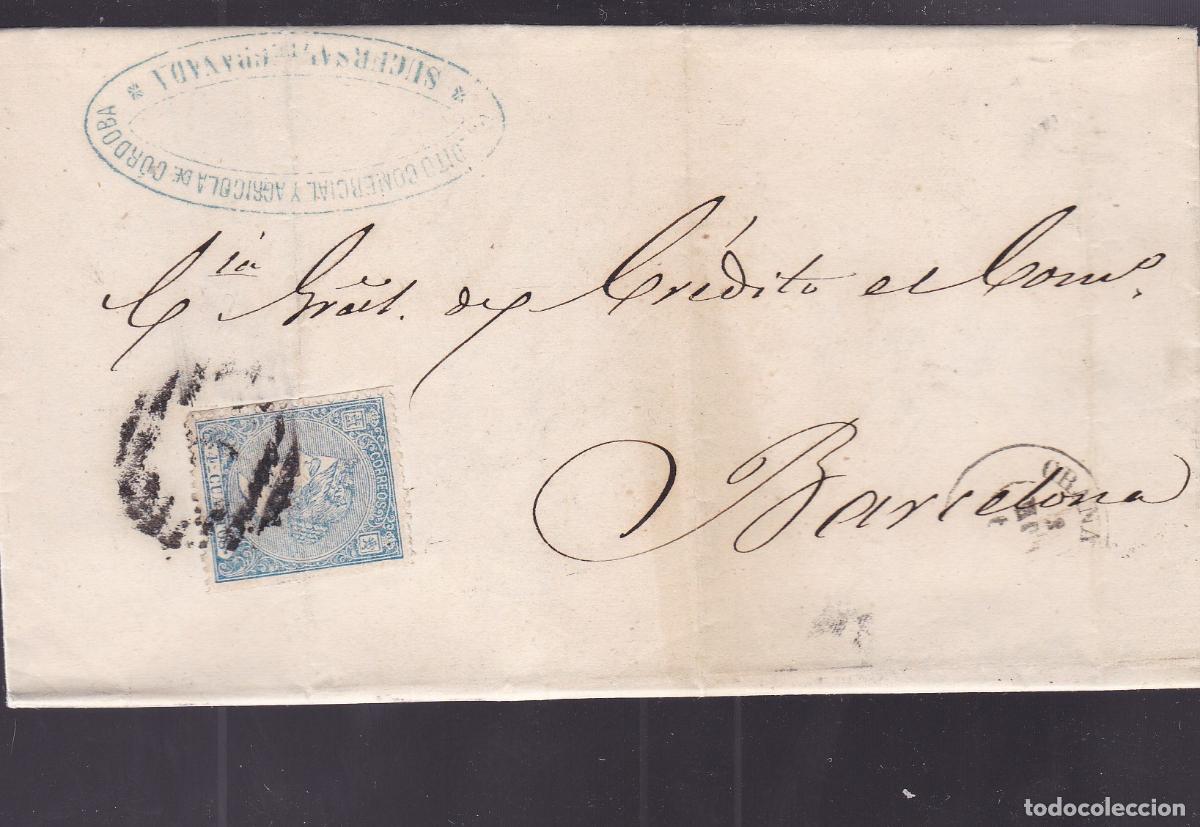 CRÉDITO COMERCIAL Y AGRICOLA DE CÓRDOBA
* SUCURSAL DE GRANADA *
Cia Gral. de Crédito el Como.
Barcelona
CORREOS
4 CUARTOS
todocoleccion